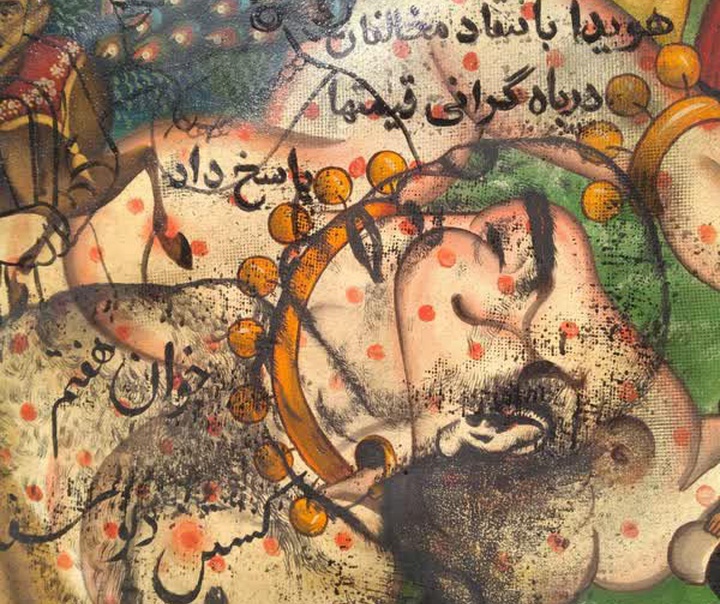 هویدا با انتقاد مخالفان
درباه گرانی قیمتها
پاسخ داد
خوان هفتم
کشتن دیو سفید